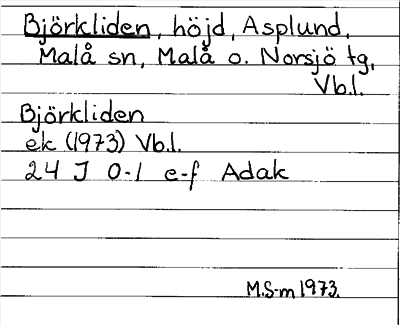 Björkliden, höjd, Asplund,
Malå sn, Malå o. Norsjö tg,
Vb.l.
Björkliden
ek (1973) Vb.l.
24 J 0-1 e-f Adak
M.S-m 1973.